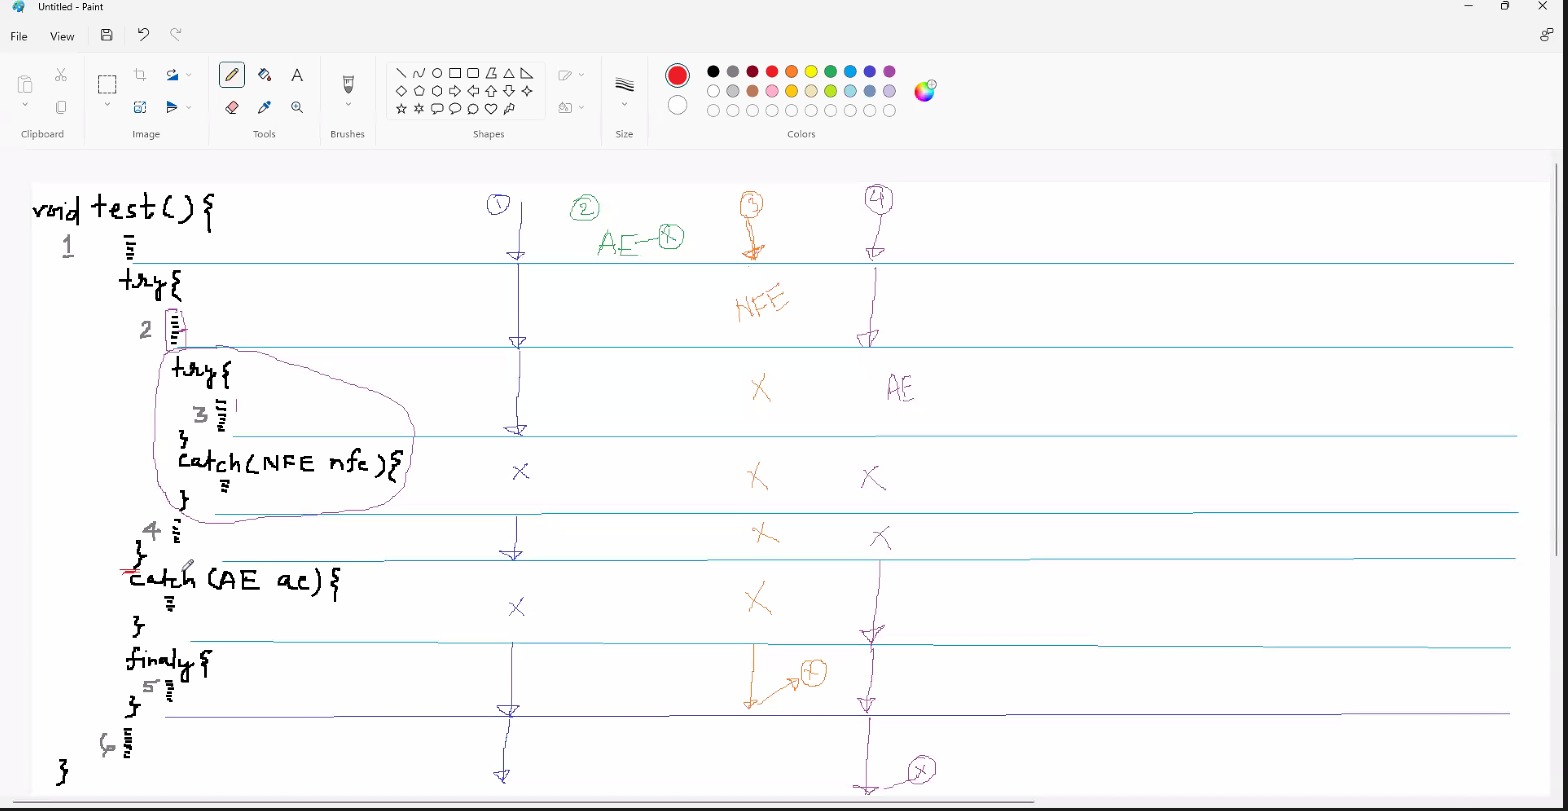 Untitled - Paint
File View
Clipboard Image Tools Brushes Shapes Size Colors
void test() {
1
try{
2
try{
3
}
catch(NFE nfe){
}
4
}
catch (AE ae){
}
finaly {
5
}
6
}
1
X
X
2
AE X
3
NFE
X
X
X
X
X
4
AE
X
X
X